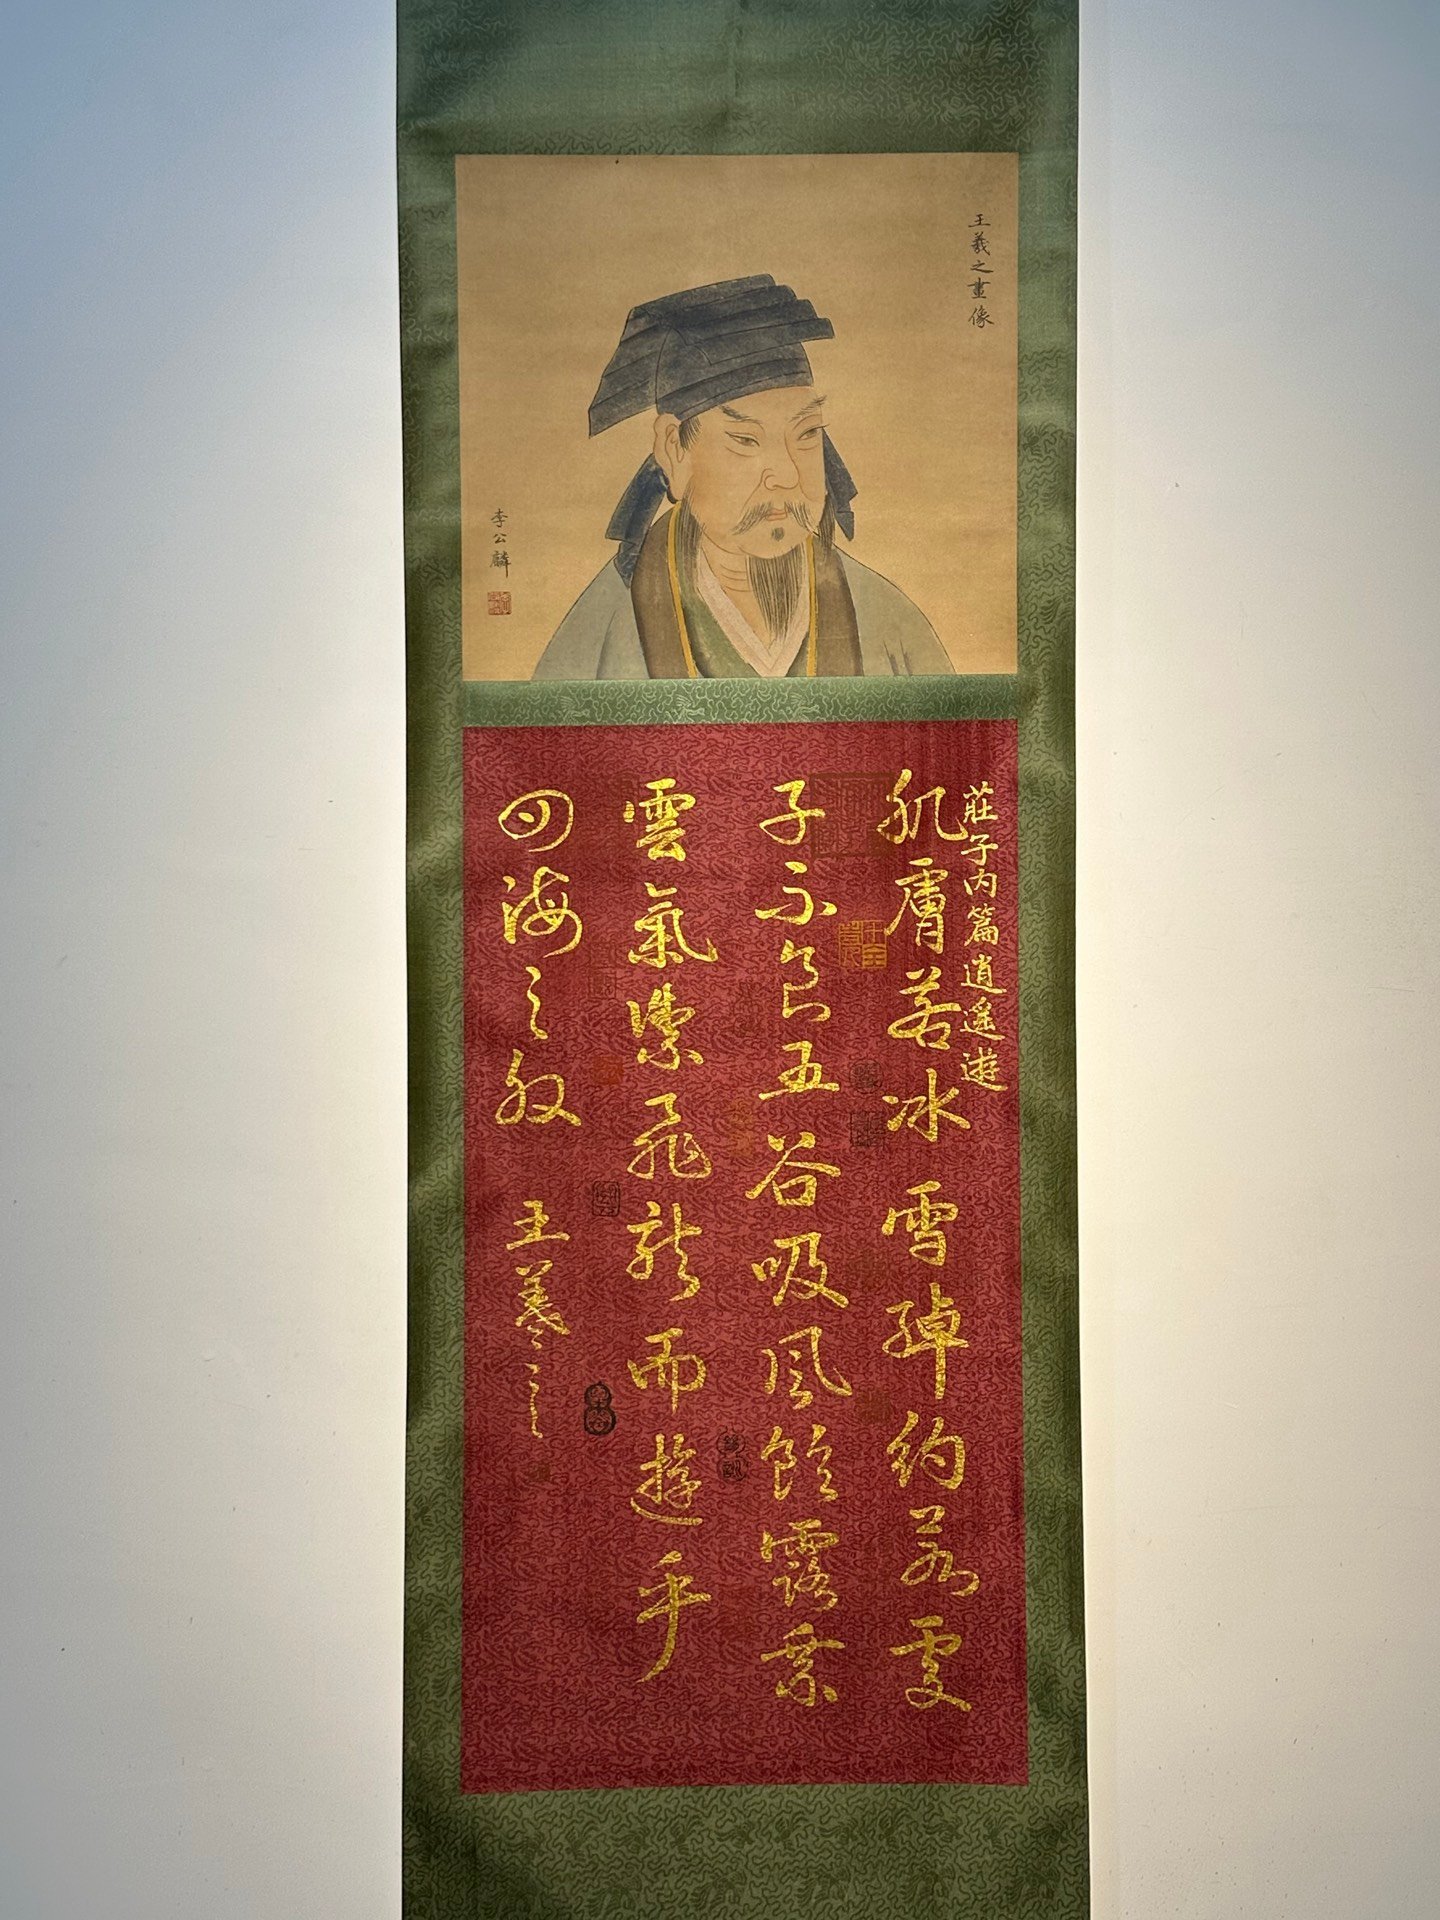 王羲之畫像
李公麟
莊子内篇逍遥遊
肌膚若冰雪綽約若處
子不食五谷吸風飲露乘
雲氣禦飛龍而遊乎
四海之外
王羲之